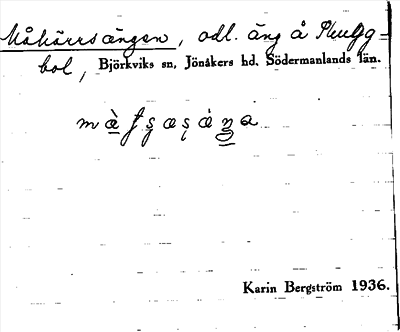 Måkärrsängen, odl. äng å Skugg-
bol, Björkviks sn, Jönåkers hd. Södermanlands län.
Karin Bergström 1936.